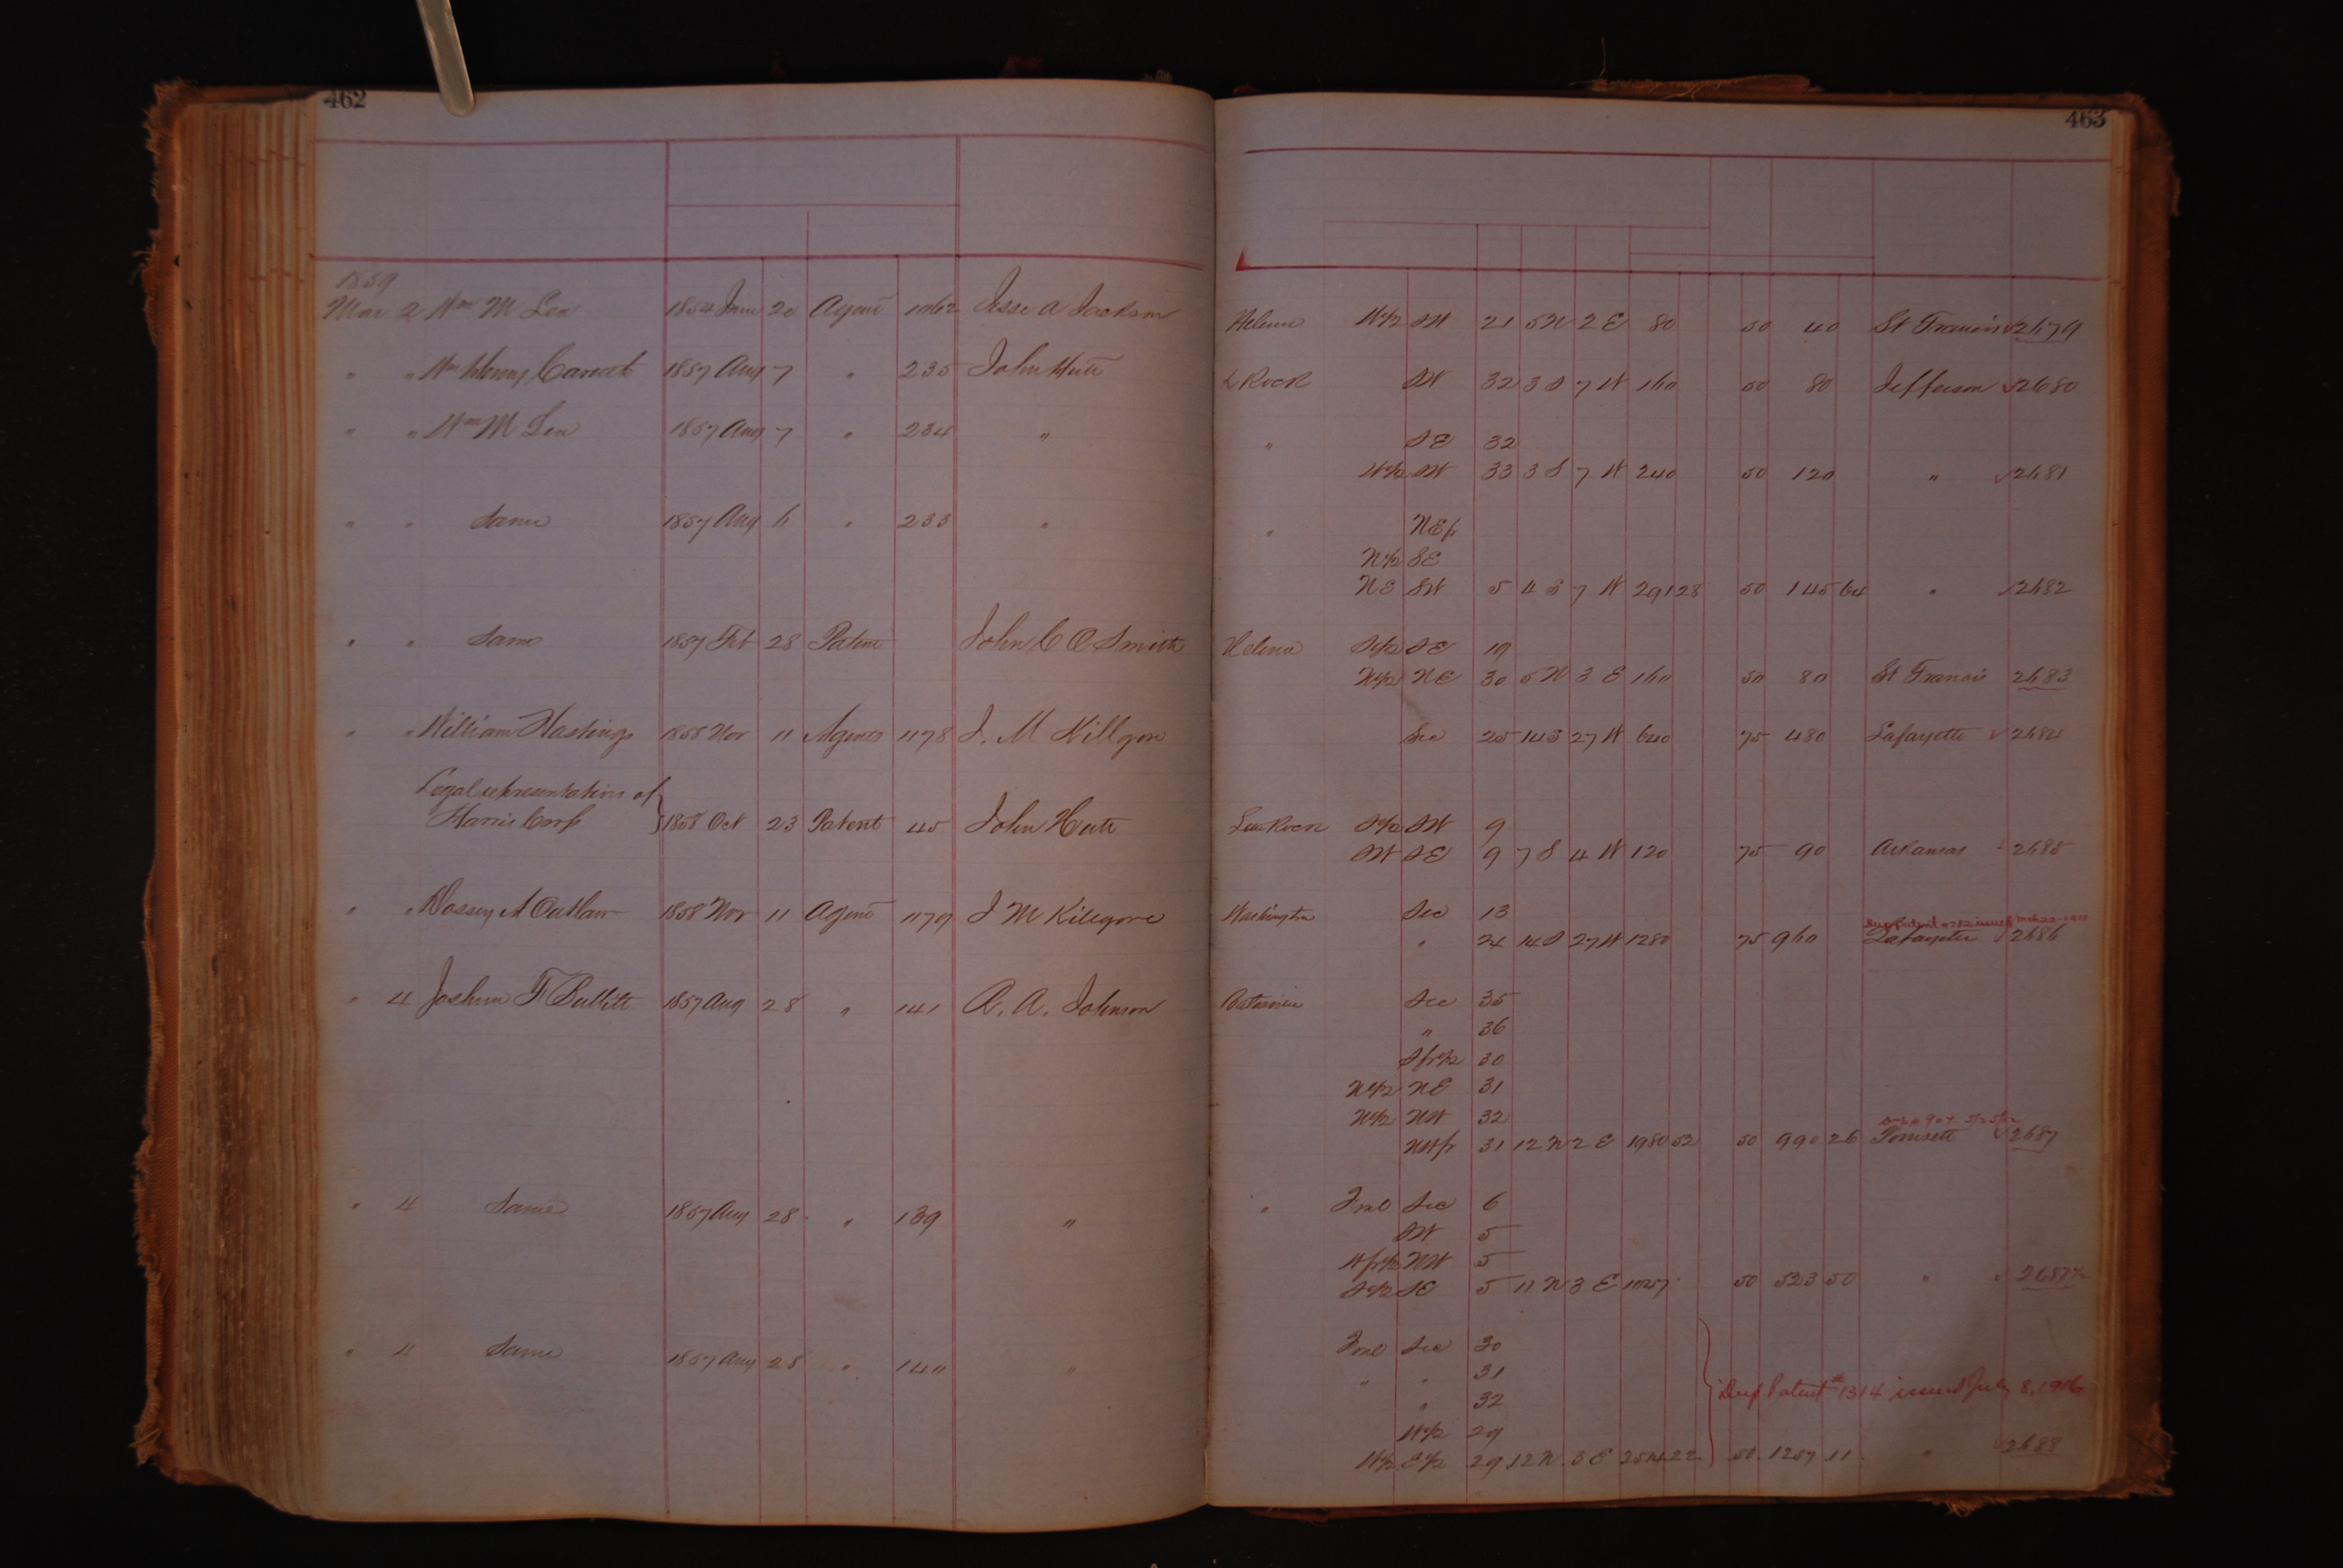 462
463
1859
Mar 2 Wm M Lea 1854 June 20 Agent 1062 Jesse A Jackson Helena W½ SW 21 5N 2E 80 50 40 St Francis 2679
" " Wm Henry 1857 Aug 7 " 235 John Hutt L Rock SW 32 3S 7W 160 50 80 Jefferson 2680
" " Wm M Lea 1857 Aug 7 " 234 " " SE 32
W½ SW 33 3S 7W 240 50 120 " 2681
" " Same 1857 Aug 6 " 233 " " NEfr
N½ SE
NE SW 5 4S 7W 291 28 50 145 64 " 2682
" " Same 1857 Feb 28 Patent John C O Smith Helena S½ SE 19
N½ NE 30 5N 3E 160 50 80 St Francis 2683
" " William Hastings 1858 Nov 11 Agents 1178 J. M Killgore Sec 25 14S 27W 640 75 480 Lafayette 2684
Legal representatives of
Harris 1858 Oct 23 Patent 45 John Hutt Rock S½ SW 9
SW SE 9 7S 4W 120 75 90 Arkansas 2685
" " Dossey A Outlaw 1858 Nov 11 Agent 1179 J M Killgore Washington Sec 13
" 24 14S 27W 1280 75 960 Lafayette 2686
" 4 Joshua F Bullitt 1857 Aug 28 " 141 R. A. Johnson Batesville Sec 35
" 36
Sfr½ 30
N½ NE 31
N½ NW 32
NWfr 31 12N 2E 1980 52 50 990 26 Poinsett 2687
" 4 Same 1857 Aug 28 " 139 " " Fracl Sec 6
SW 5
Wfr½ NW 5
S½ SE 5 11N 3E 1047 50 523 50 " 2687½
" 4 Same 1857 Aug 28 " 140 " Fracl Sec 30
" " 31
" 32
Dup Patent # 1314 issued July 8, 1916
W½ 29
W½ E½ 29 12N 3E 2514 22 50 1257 11 " 2688